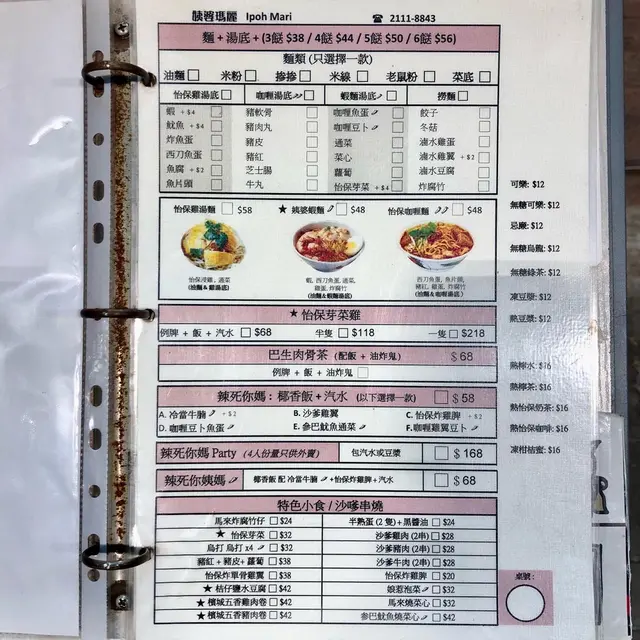 姨婆瑪麗 Ipoh Mari ☎ 2111-8843
麵 + 湯底 + (3餸 $38 / 4餸 $44 / 5餸 $50 / 6餸 $56)
麵類 (只選擇一款)
油麵 米粉 摻摻 米線 老鼠粉 菜底
怡保雞湯底 咖喱湯底 蝦麵湯底 撈麵
蝦 +$4 豬軟骨 咖喱魚蛋 餃子
魷魚 +$4 豬肉丸 咖喱豆卜 冬菇
炸魚蛋 豬皮 通菜 滷水雞蛋
西刀魚蛋 豬紅 菜心 滷水雞翼 +$2
魚腐 +$2 芝士腸 蘿蔔 滷水豆腐
魚片頭 牛丸 怡保芽菜 +$4 炸腐竹
怡保雞湯麵 $58 ★ 姨婆蝦麵 $48 怡保咖喱麵 $48
怡保浸雞, 通菜 蝦, 西刀魚蛋, 通菜, 西刀魚蛋, 魚片頭,
雞蛋, 炸腐竹 豬紅, 雞蛋, 炸腐竹
(油麵&雞湯底) (油麵&蝦麵湯底) (油麵&咖喱湯底)
★ 怡保芽菜雞
例牌 + 飯 + 汽水 $68 半隻 $118 一隻 $218
巴生肉骨茶 (配飯 + 油炸鬼) $68
例牌 + 飯 + 油炸鬼
辣死你媽 : 椰香飯 + 汽水 (以下選擇一款) $58
A. 冷當牛腩 +$2 B. 沙爹雞翼 C. 怡保炸雞髀 +$2
D. 咖喱豆卜魚蛋 E. 參巴魷魚通菜 F.咖喱雞翼豆卜
辣死你媽 Party (4人份量只供外賣) 包汽水或豆漿 $168
辣死你姨媽 椰香飯 配 冷當牛腩 +怡保炸雞髀+汽水 $68
特色小食 / 沙嗲串燒
馬來炸腐竹仔 $24 半熟蛋 (2 隻) + 黑醬油 $24
★ 怡保芽菜 $32 沙爹雞肉 (2串) $28
烏打 烏打 x4 $32 沙爹豬肉 (2串) $28
豬紅 + 豬皮+ 蘿蔔 $38 沙爹牛肉 (2串) $28
怡保炸單骨雞翼 $38 怡保炸雞髀 $20
★ 桔仔鹽水豆腐 $42 娘惹泡菜 $32
★ 檳城五香雞肉卷 $42 馬來燒菜心 $32
★ 檳城五香豬肉卷 $42 參巴魷魚燒菜心 $42
可樂: $12
無糖可樂: $12
忌廉: $12
無糖烏龍: $12
無糖綠茶: $12
凍豆漿: $12
熱豆漿: $12
熱檸水: $16
熱檸茶: $16
熱怡保奶茶: $16
熱怡保咖啡: $16
凍柑桔蜜: $16
桌號 :